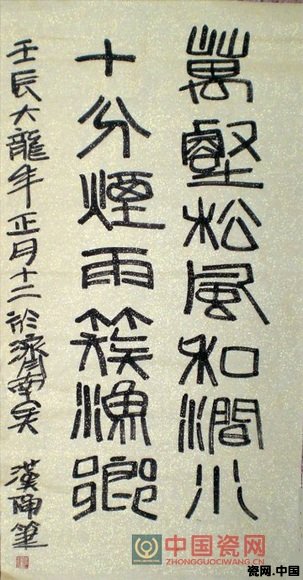 萬壑松風和澗水
十分煙雨簇漁鄉
壬辰大龍年正月十二於濟南 漢筆
中国瓷网
ZHONGGUOCIWANG.CN
瓷网.中国